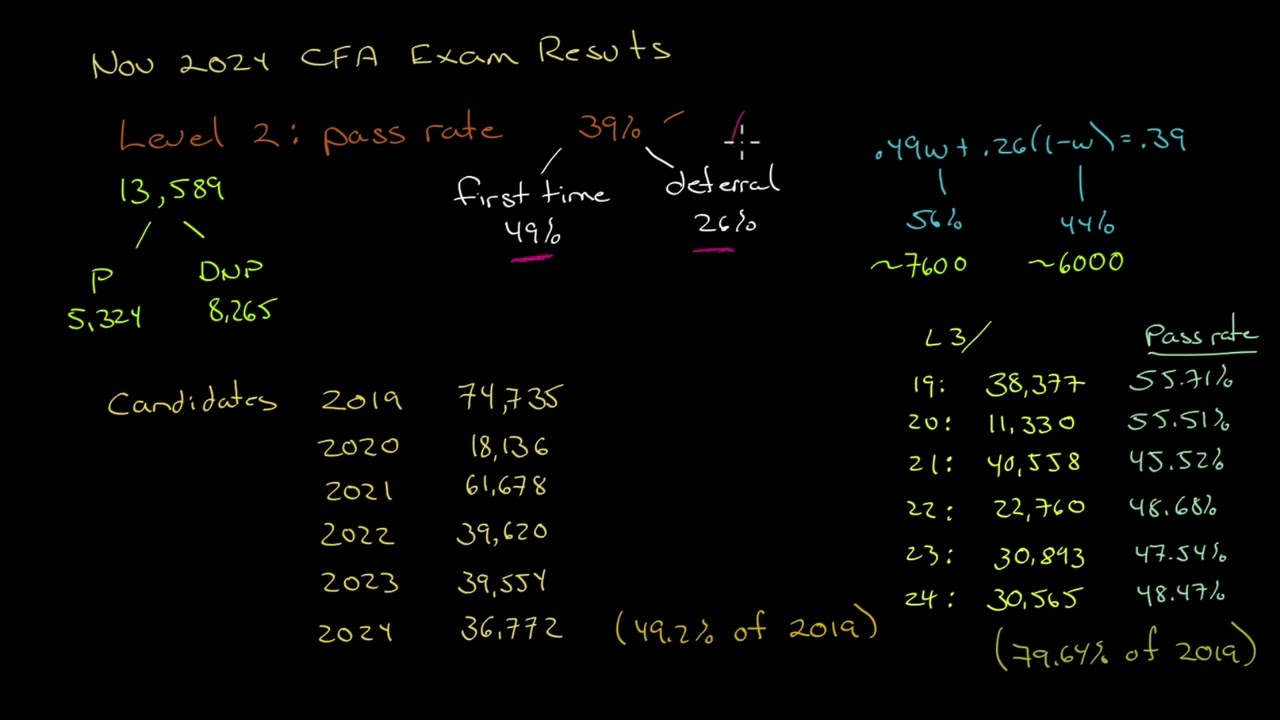 Nov 2024 CFA Exam Results
Level 2: pass rate 39%
13,589
P DNP
5,324 8,265
first time deferral
49% 26%
.49w + .26(1-w) = .39
56% 44%
~7600 ~6000
Candidates 2019 74,735
2020 18,136
2021 61,678
2022 39,620
2023 39,554
2024 36,772 (49.2% of 2019)
L3/ Pass rate
19: 38,377 55.71%
20: 11,330 55.51%
21: 40,558 45.52%
22: 22,760 48.68%
23: 30,893 47.54%
24: 30,565 48.47%
(79.64% of 2019)